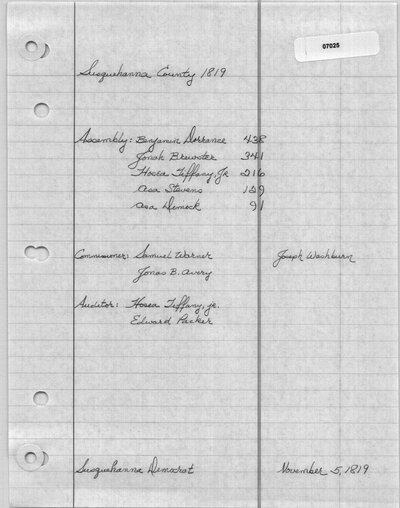 07025
Susquehanna County 1819
Assembly: Benjamin Dorrance 438
Jonah Brewster 341
Hosea Tiffany, Jr. 216
Asa Stevens 129
Asa Dimock 91
Commissioner: Samuel Warner Joseph Washburn
Jonas B. Avery
Auditor: Hosea Tiffany, jr.
Edward Packer
Susquehanna Democrat November 5, 1819